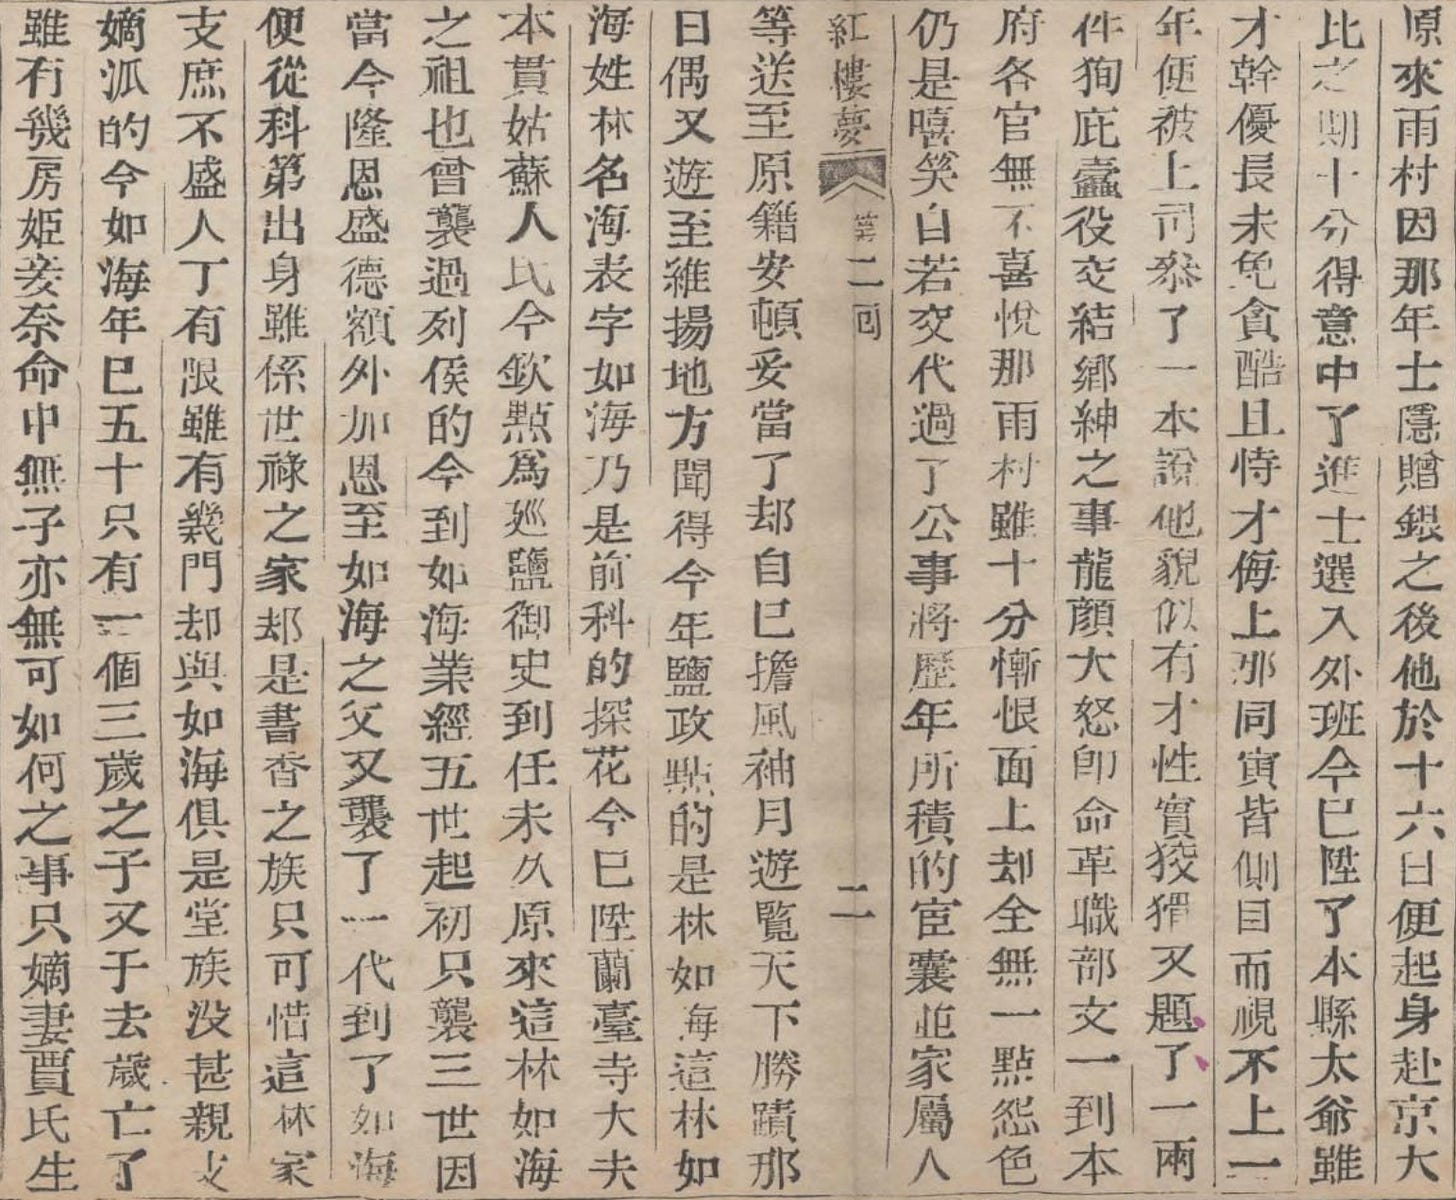 原來雨村因那年士隱贈銀之後他於十六日便起身赴京大
比之期十分得意中了進士選入外班今已陞了本縣太爺雖
才幹優長未免貪酷且恃才侮上那同寅皆側目而視不上一
年便被上司叅了一本說他貌似有才性實狡猾又題了一兩
件狥庇蠹役交結鄉紳之事龍顏大怒卽命革職部文一到本
府各官無不喜悅那雨村雖十分慚恨面上却全無一點怨色
仍是嘻笑自若交代過了公事將歷年所積的宦囊並家屬人
紅樓夢 第二回 二
等送至原籍安頓妥當了却自已擔風袖月遊覽天下勝蹟那
日偶又遊至維揚地方聞得今年鹽政點的是林如海這林如
海姓林名海表字如海乃是前科的探花今已陞蘭臺寺大夫
本貫姑蘇人氏今欽點爲廵鹽御史到任未久原來這林如海
之祖也曾襲過列侯的今到如海業經五世起初只襲三世因
當今隆恩盛德額外加恩至如海之父又襲了一代到了如海
便從科第出身雖係世祿之家却是書香之族只可惜這林家
支庶不盛人丁有限雖有幾門却與如海俱是堂族没甚親支
嫡派的今如海年已五十只有一個三歲之子又于去歲亡了
雖有幾房姬妾奈命中無子亦無可如何之事只嫡妻賈氏生